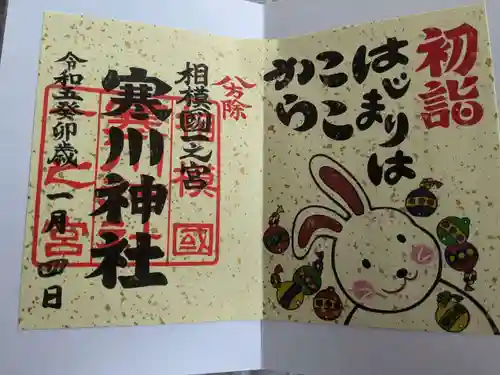 初詣
はじまりは
ここ
から
八方除
相模國一之宮
寒川神社
令和五癸卯歳
一月四日